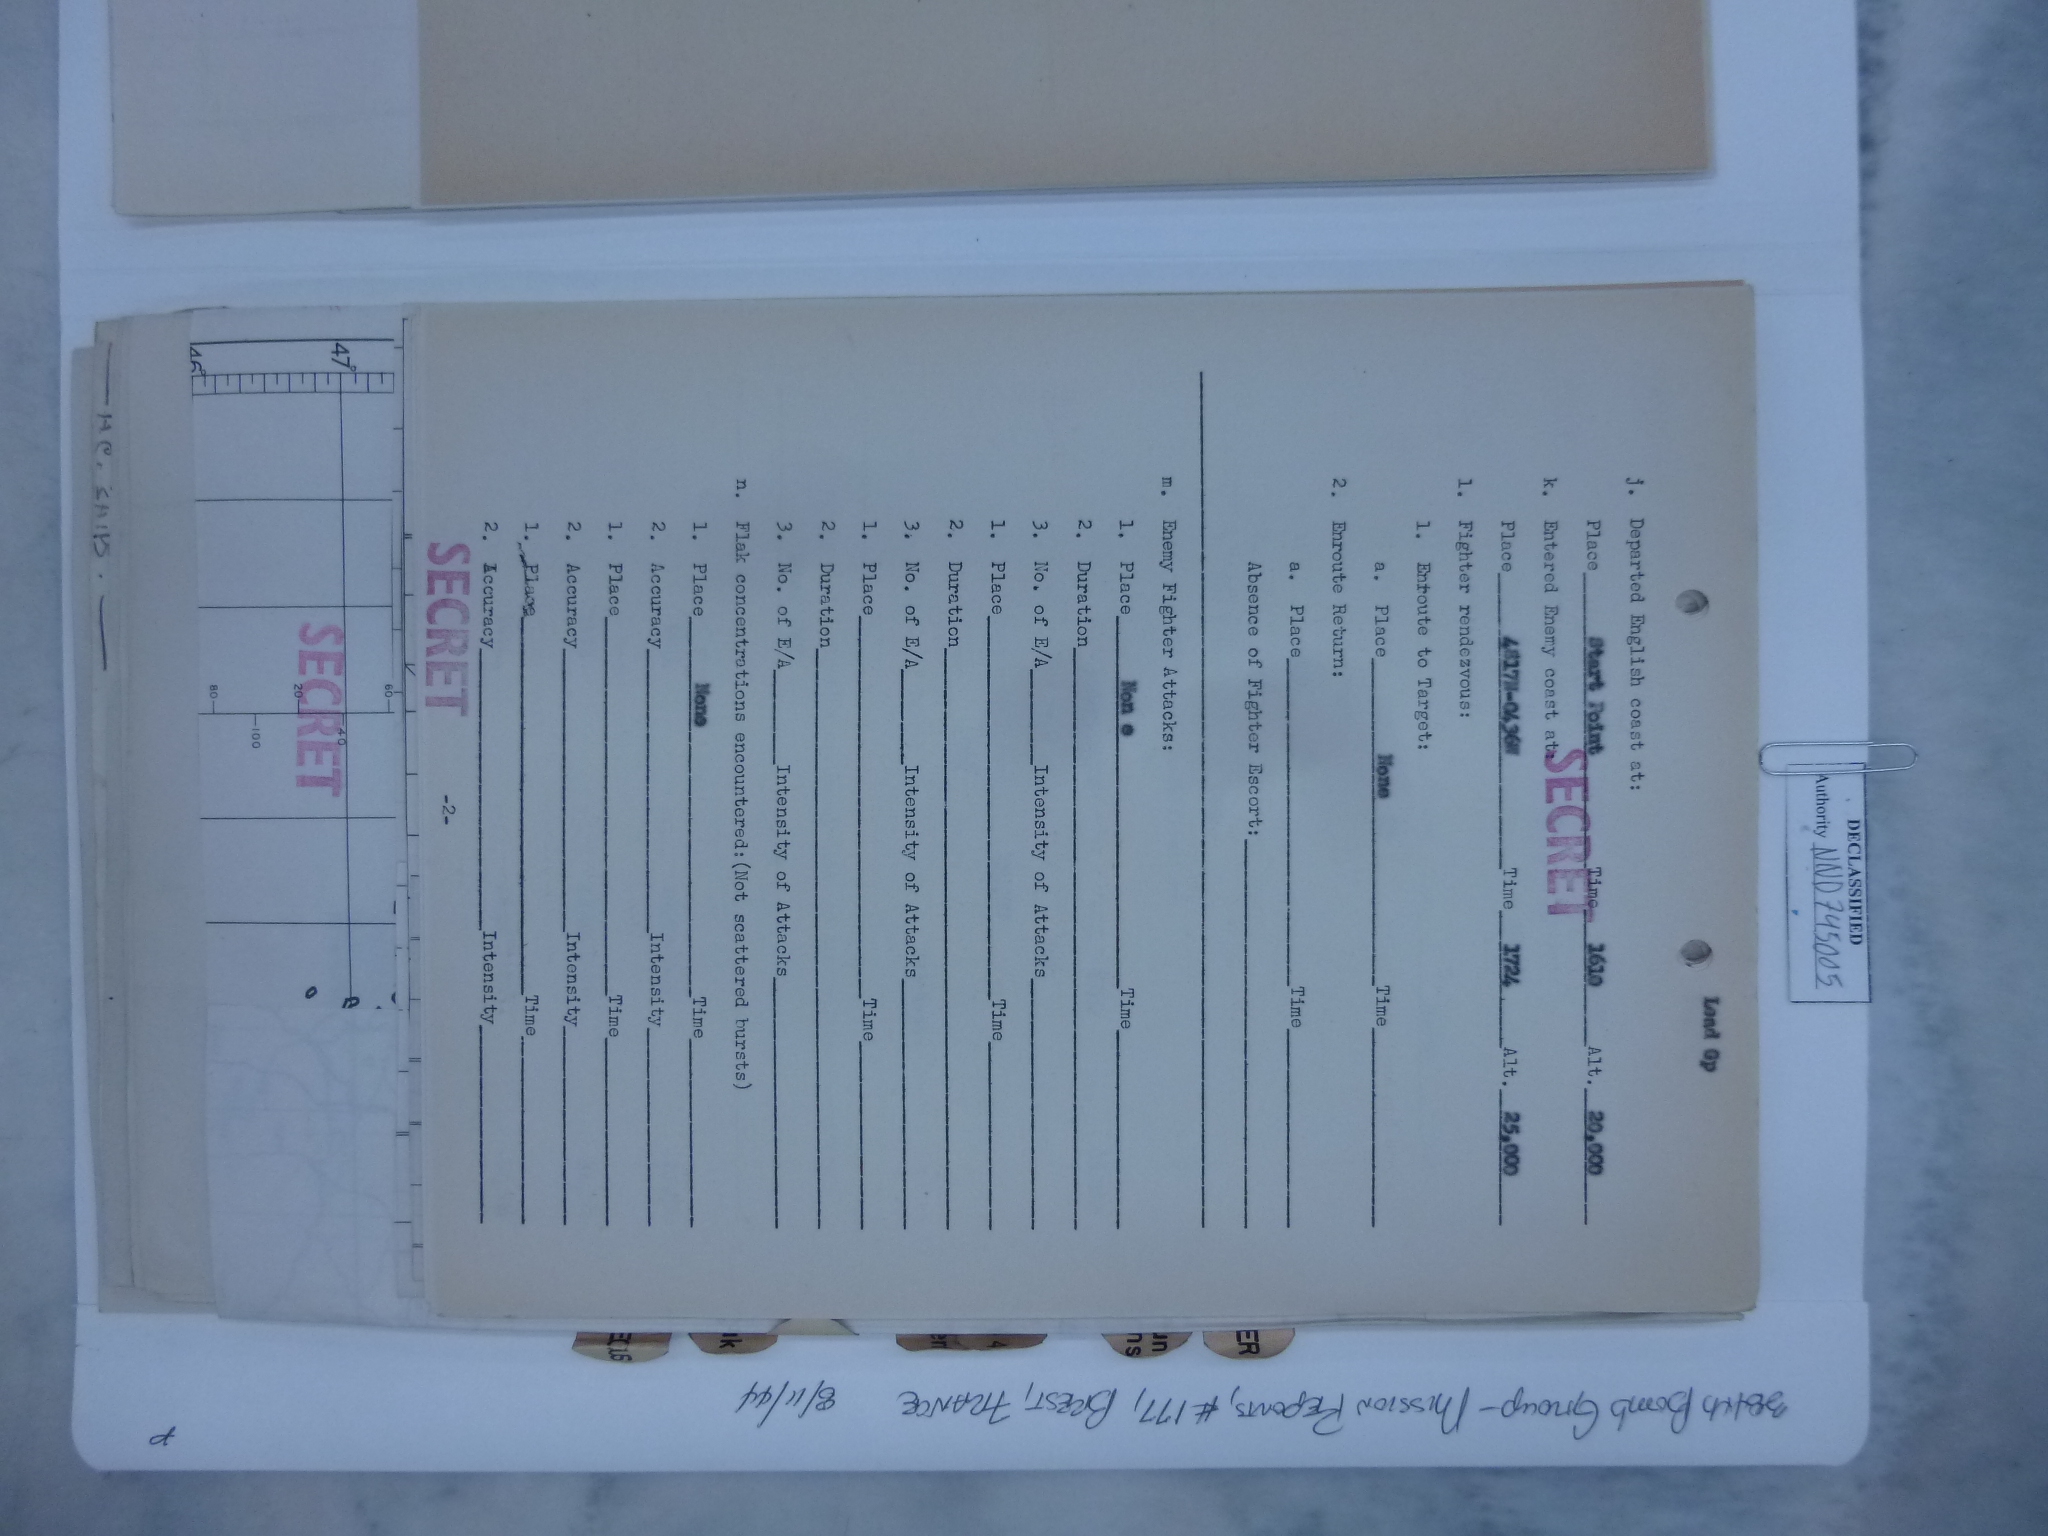 DECLASSIFIED
Authority NND 745005
Lead Gp
j. Departed English coast at:
Place Start Point Time 1610 Alt. 20,000
SECRET
k. Entered Enemy coast at:
Place 4817N-0436W Time 1724 Alt. 25,000
l. Fighter rendezvous:
1. Entoute to Target:
a. Place None Time
2. Enroute Return:
a. Place Time
Absence of Fighter Escort:
m. Enemy Fighter Attacks:
1. Place Non e Time
2. Duration
3. No. of E/A Intensity of Attacks
1. Place Time
2. Duration
3. No. of E/A Intensity of Attacks
1. Place Time
2. Duration
3. No. of E/A Intensity of Attacks
n. Flak concentrations encountered:(Not scattered bursts)
1. Place None Time
2. Accuracy Intensity
1. Place Time
2. Accuracy Intensity
1. Place Time
2. Accuracy Intensity
SECRET
-2-
60
47°
40
20
SECRET
100
80
46°
ER
un
ns
4
er
k
E16
384th Bomb Group - Mission Reports, #177, BREST, FRANCE 8/11/44